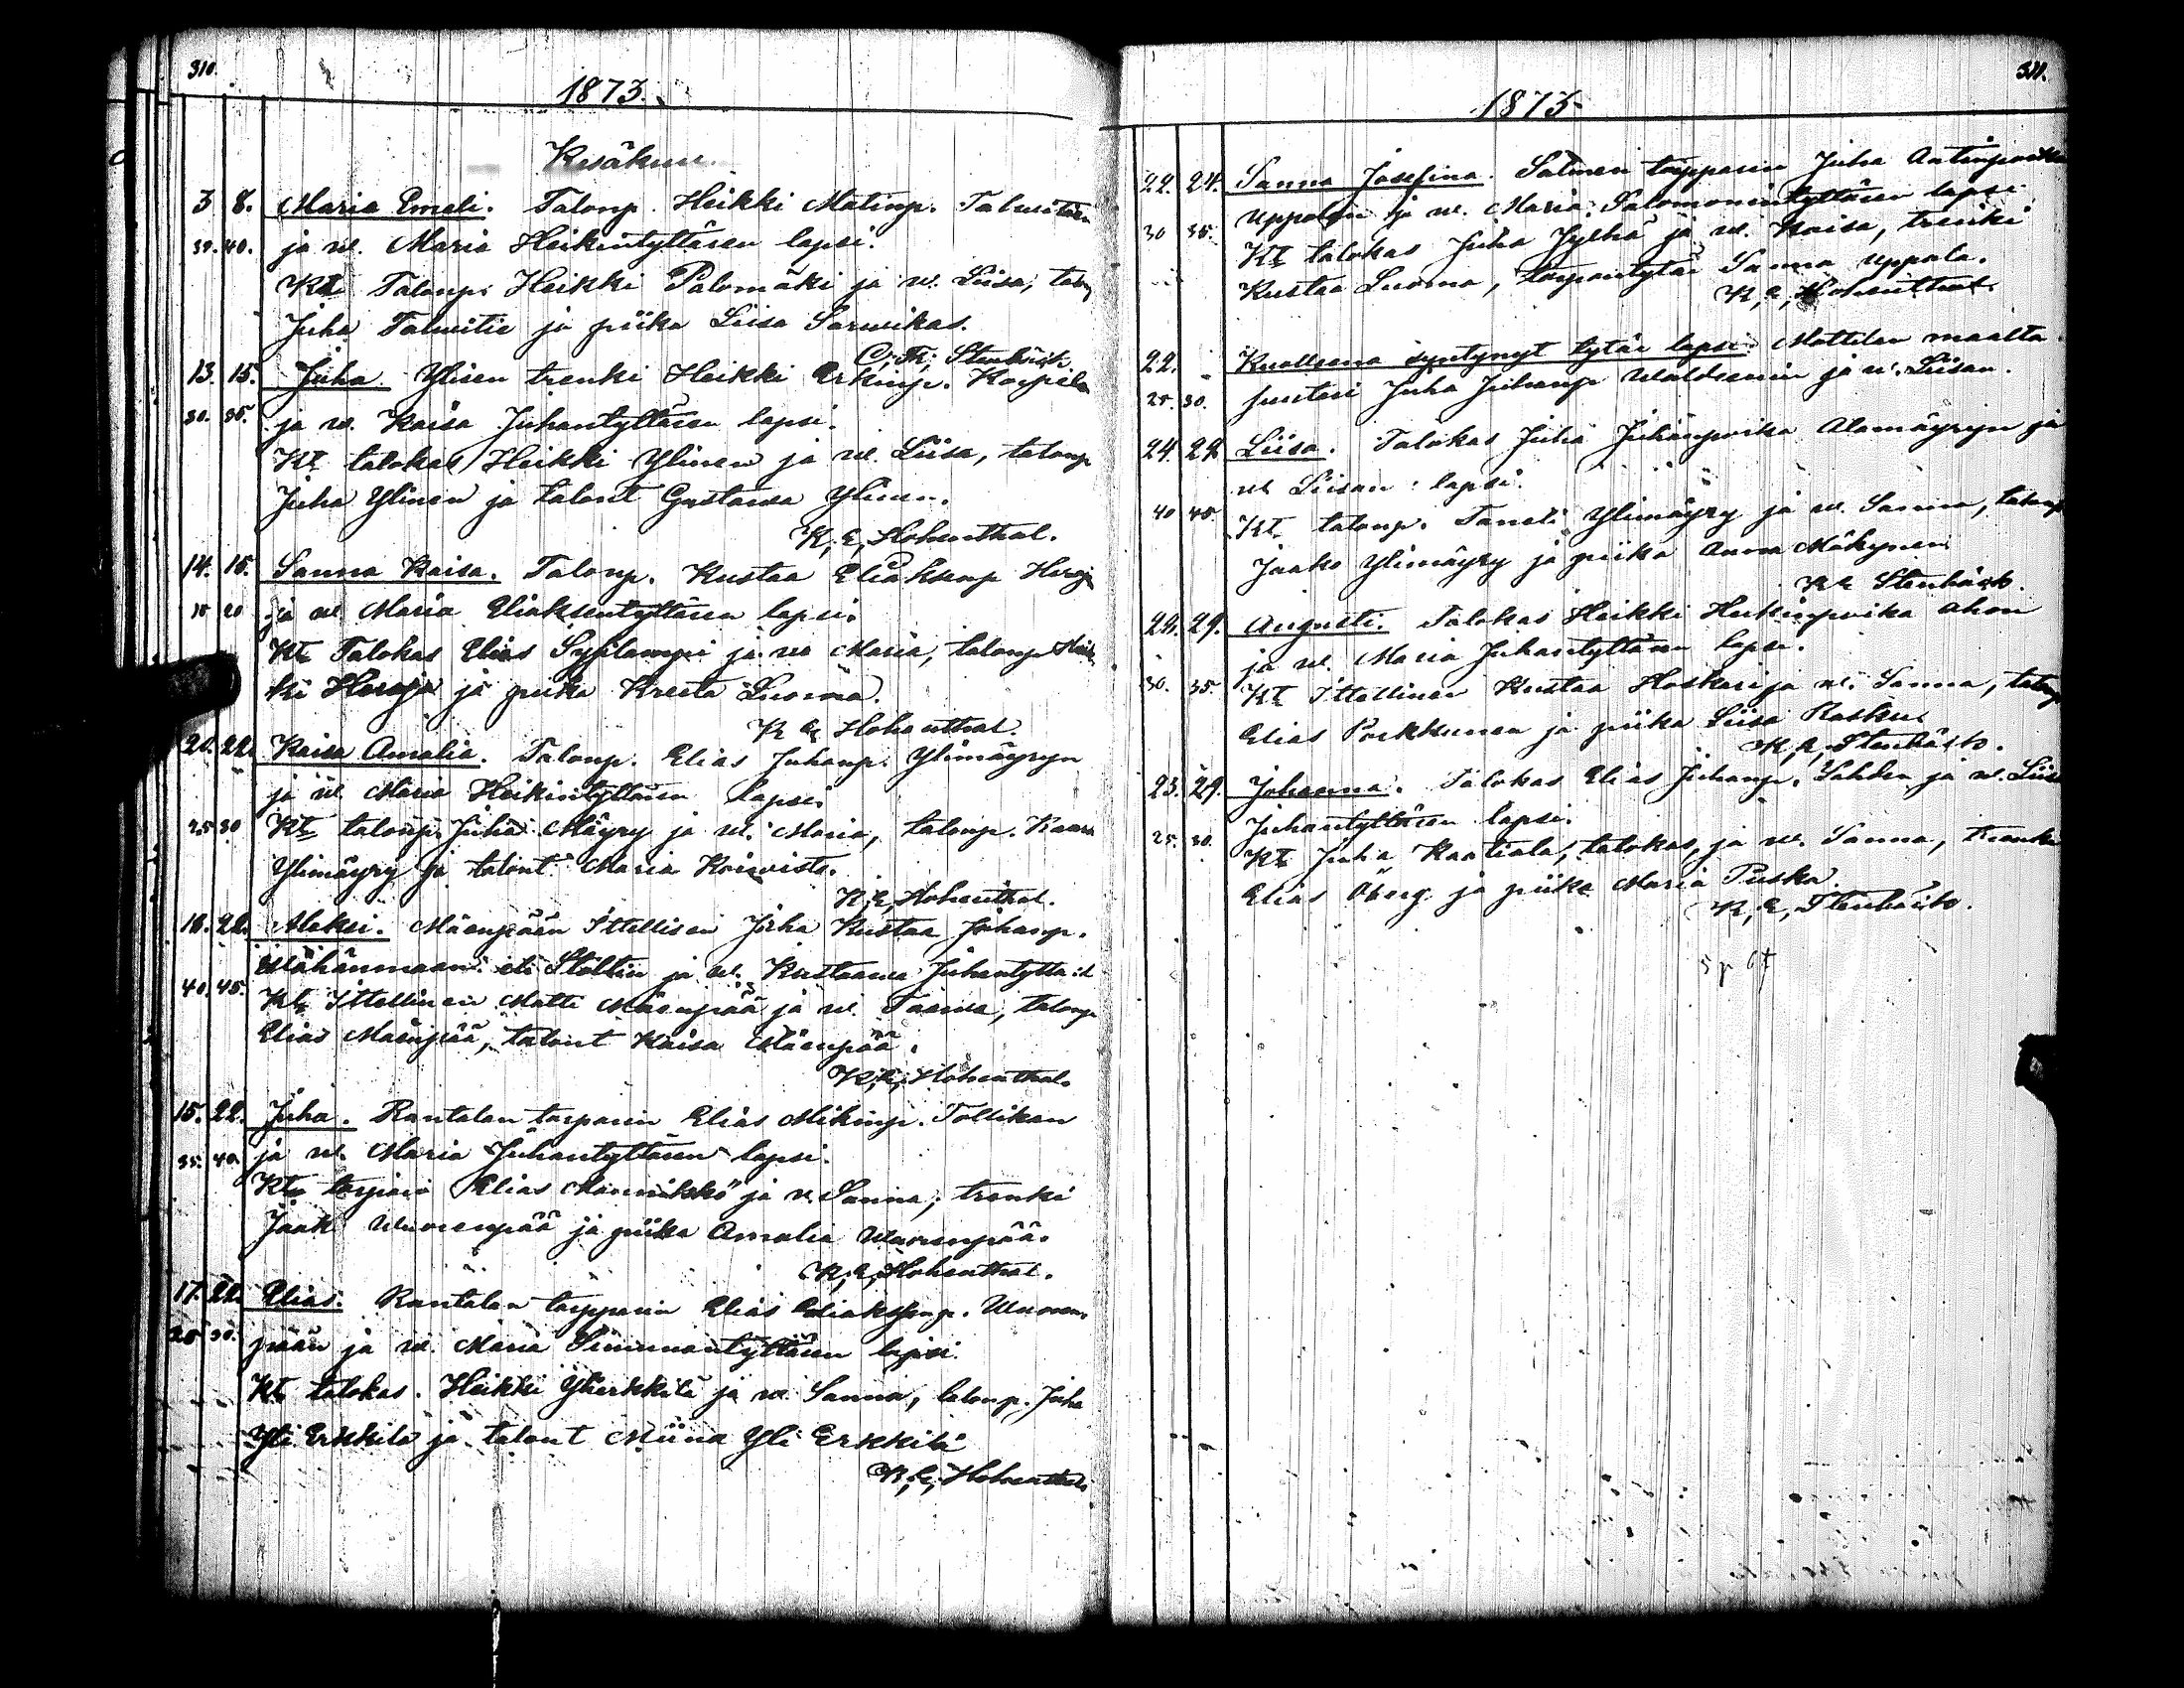 310.
1873.
Kesäkuu
3 8. Maria Emeli. Talonp. Heikki Matinp. Taluitien
35. 40. ja w. Maria Heikintyttären lapsi.
Kt. Talonp. Heikki Palomäki ja w. Liisa, talonp
Juha Taluitie ja piika Liisa Sarwikas.
C, Th, Stenbäck.
13. 15. Juha Ylisen trenki Heikki Erkinp. Karpela
30. 35. ja w. Kaisa Juhantyttären lapsi.
Kt. talokas Heikki Ylinen ja w. Liisa, talonp
Juha Ylinen ja talont Gustawa Ylinen.
K, E, Hohenthal.
14. 15. Sanna Kaisa. Talonp. Kustaa Eliaksenp Heroja
15 20 ja w Maria Eliaksentyttären lapsi.
Kt. Talokas Elias Syrilampi ja w Maria, talonp Heik
ki Heroja ja piika Kreeta Luoma.
K E Hohenthal.
20. 22. Kaisa Amalia. Talonp. Elias Juhanp. Ylimäyryn
ja w Maria Heikintyttären lapsi.
25 30 Kt. talonp. Juha Mäyry ja w. Maria, talonp. Kaara
Ylimäyry ja talont Maria Koiwisto.
K, E, Hohenthal.
18. 22. Aleksi. Mäenpään Ittellisen Juha Kustaa Juhanp.
Wähänmaan eli Stoltin ja w. Kustaawa Juhantyttä :l
40. 45. Kt. Ittellinen Matti Mäenpää ja w. Taawa, talonp
Elias Mäenpää, talont Kaisa Mäenpää.
K, E, Hohenthal.
15. 22. Juha. Rantalan torparin Elias Mikinp. Tollikan
35. 40. ja w. Maria Juhantyttären lapsi.
Kt. torpari Elias Mannikkö ja w Sanna, trenki
Jaak Wuorenpää ja piika Amalia Wuorenpää.
K, E, Hohenthal.
17. 22. Elias. Rantalan torpparin Elias Eliaksenp. Wuoren
25 30. pään ja w. Maria Simmuntyttären lapsi.
Kt. talokas. Heikki Ylierkkilä ja w. Sanna, talonp. Juha
Yli Erkkilä ja talont Miina Yli Erkkilä
K, E, Hohenthal.
311.
1873
22. 24. Sanna Josefina. Salmen torpparin Juha Antinpoika
Uppalan ja w. Maria Salomonintyttären lapsi.
30 35. Kt. talokas Juha Jylhä ja w. Kaisa, trenki
Kustaa Luoma, torparintytär Sanna Uppala.
K, E, Hohenthal.
22. Kuolleena syntynyt tytär lapsi. Mattilan maalta
25. 30. suutari Juha Juhanp Waldeenin ja w. Liisan.
24. 29. Liisa. Talokas Juha Juhanpoika Alamäyryn ja
w Liisan lapsi.
40 45. Kt. talonp. Taneli Ylimäyry ja w. Sanna, talonp
Jaako Ylimäyry ja piika Anna Mäkynen
K E Stenbäck.
28. 29. Augusti. Talokas Heikki Heikinpoika Ahon
ja w. Maria Juhantyttären lapsi.
30. 35. Kt. Ittellinen Kustaa Hoskari ja w. Sanna, talonp
Elias Porkkunen ja piika Liisa Rasku
K, E, Stenbäck.
23. 29. Johanna. Talokas Elias Juhanp. Lahden ja w. Liisa
Juhantyttären lapsi.
25. 30. Kt. Juha Kaatiala, talokas, ja w. Sanna, trenki
Elias Öberg ja piika Maria Puska.
K, E, Stenbäck.